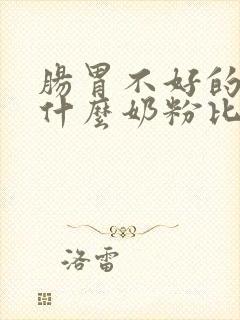 腸胃不好的
什麼奶粉比
洛雷